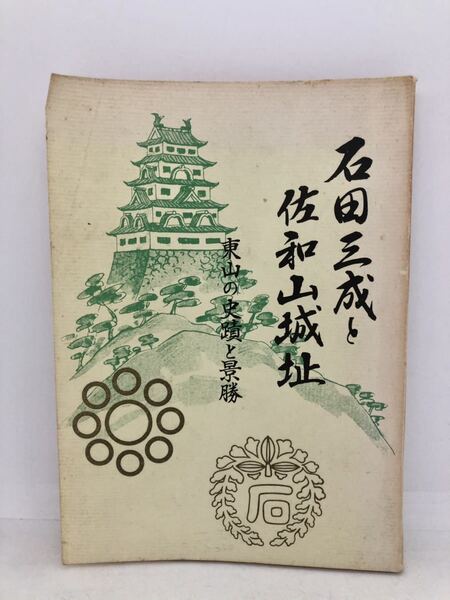 石田三成と
佐和山城址
東山の史蹟と景勝
石